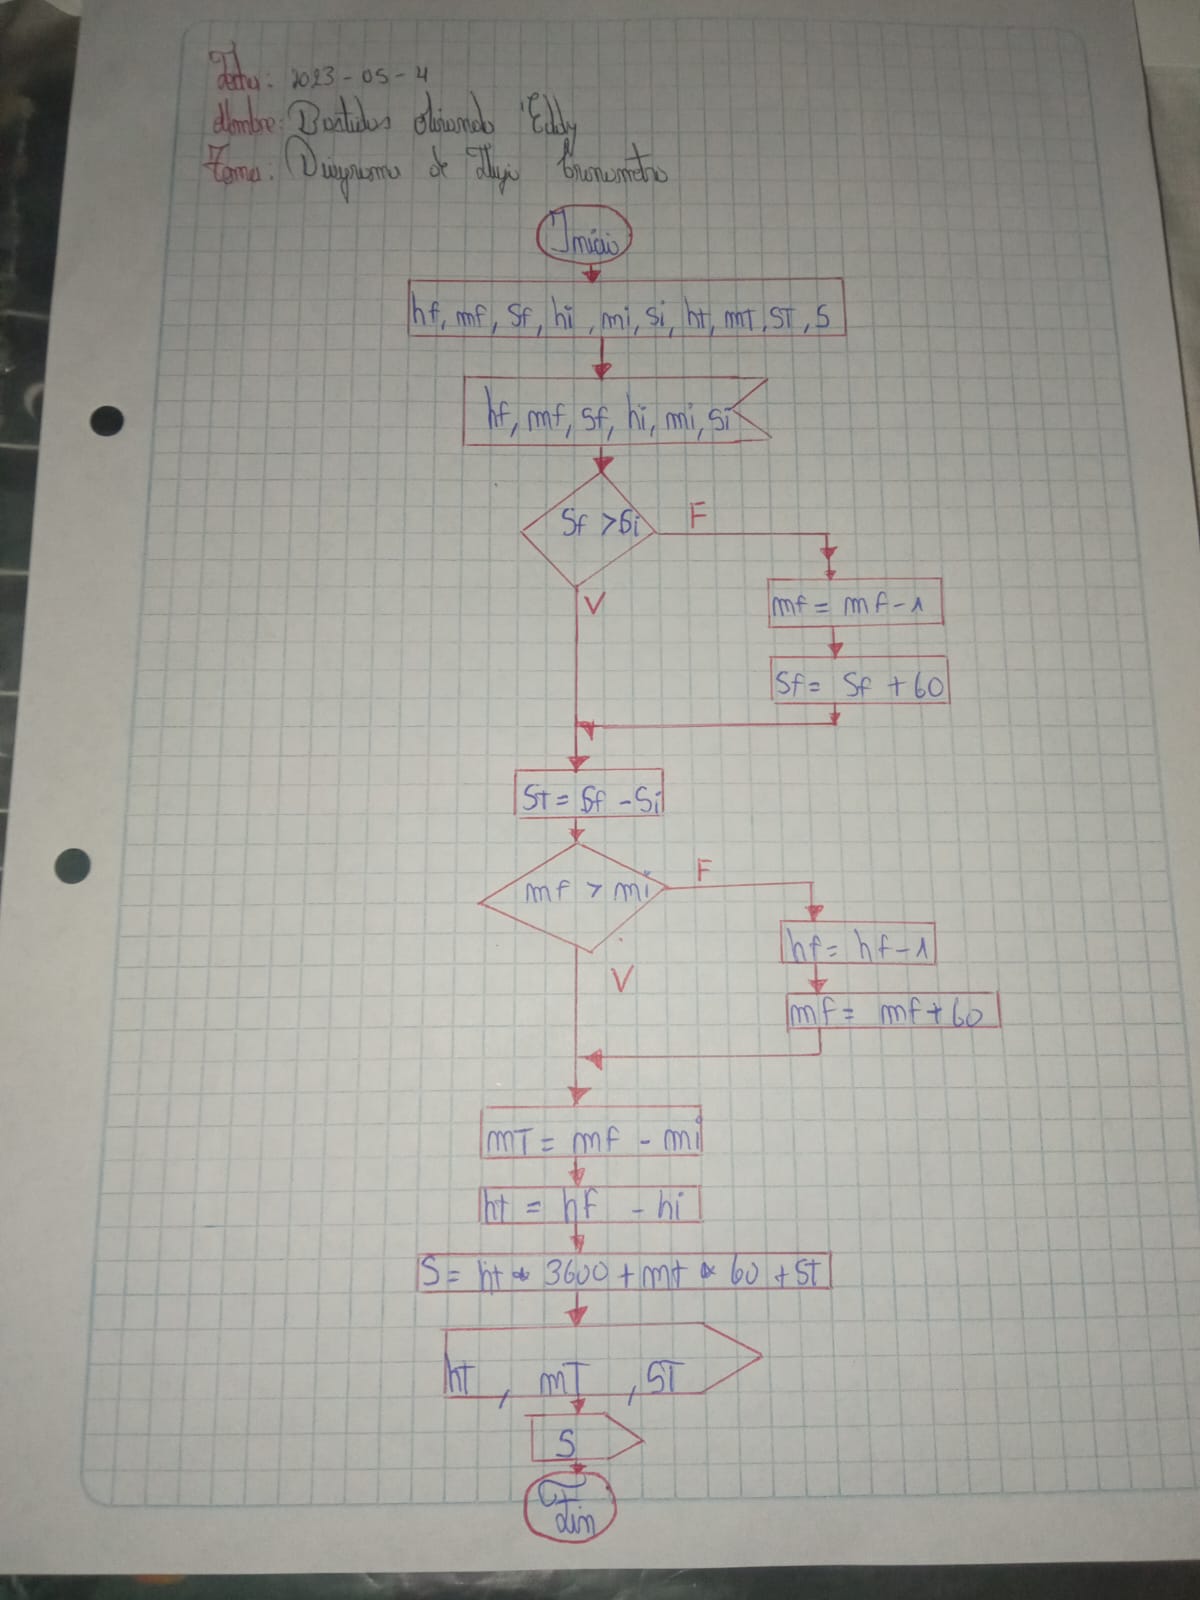 Fecha: 2023-05-4
Nombre: Bastidas Eddy
Tema: Diagrama de Flujo Cronometro
Inicio
hf, mf, Sf, hi, mi, Si, ht, mT, ST, S
hf, mf, Sf, hi, mi, Si
Sf > Si
F
V
mf = mf - 1
Sf = Sf + 60
ST = Sf - Si
mf > mi
F
V
hf = hf - 1
mf = mf + 60
mT = mf - mi
ht = hf - hi
S = ht * 3600 + mt * 60 + ST
hT, mT, ST
S
Fin